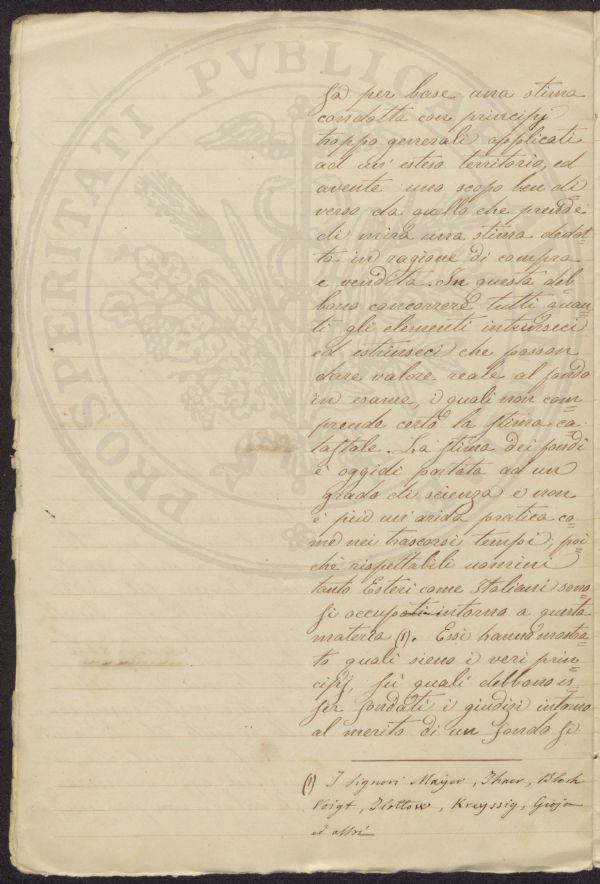 PROSPERITATI PVBLICAE
fa per base una stima
condotta con principj
troppo generali applicati
ad un' esteso territorio, ed
avente uno scopo ben di
verso da quello che prende
di mira una stima dedot
ta in ragione di compra
e vendita. In questa deb
bono concorrere tutti quan
ti gli elementi intrinseci
ed estrinseci che posson
dare valore reale al fondo
in esame, i quali non com
prende certo la stima ca
tastale. La stima dei fondi
è oggidì portata ad un
grado di scienza e non
è più un' arida pratica co
me nei trascorsi tempi, poi
chè rispettabili uomini
tanto Esteri come Italiani sono
si occupati intorno a queste
materia (1). Essi hanno mostra
to quali sieno i veri prin
cipj, su quali debbono es
ser fondati i giudizi intorno
al merito di un fondo si
(1) I Signori Mayer, Thaer, Block
Voigt, Flottow, Kreyssig, Gioja
ed altri